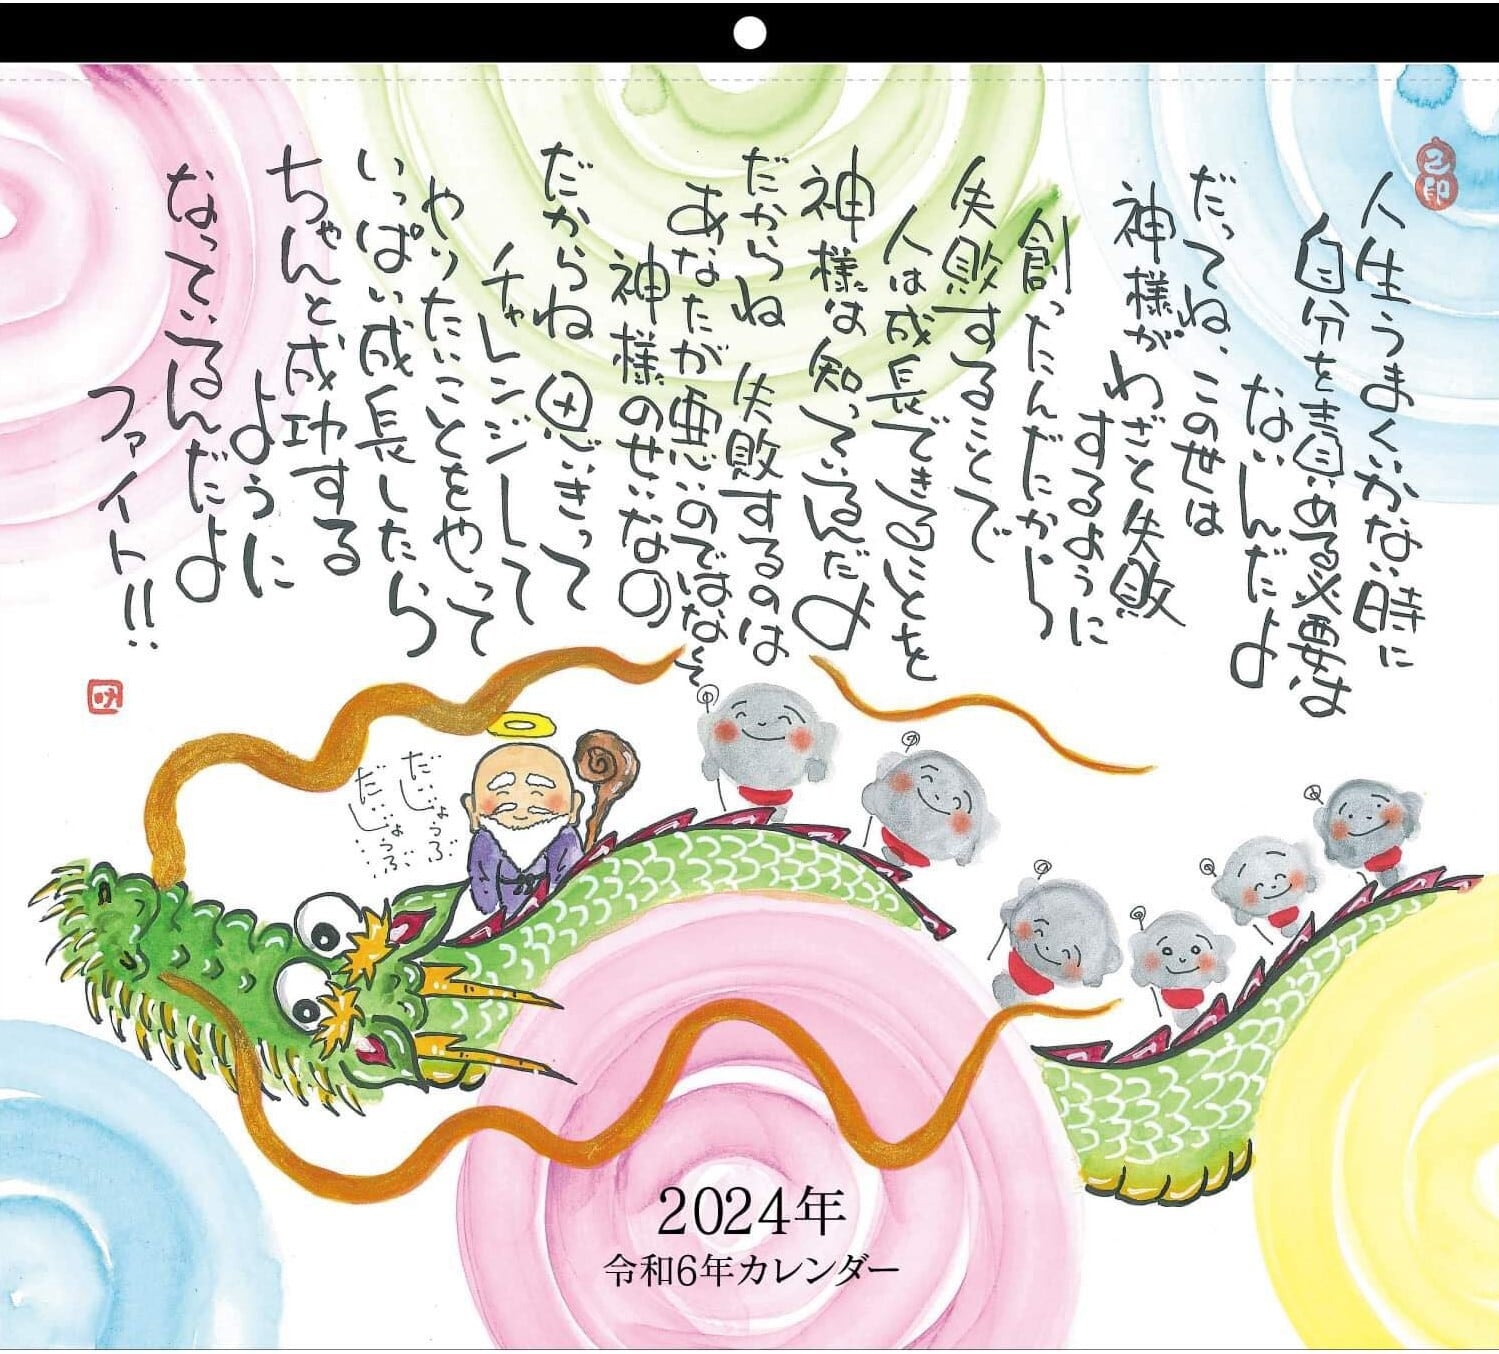 人生うまくいかない時に
自分を責める必要は
ないんだよ
だってね、この世は
神様がわざと失敗
するように
創ったんだから
失敗することで
人は成長できることを
神様は知っているんだよ
だからね 失敗するのは
あなたが悪いのではなく
神様のせいなの
だからね 思いきって
チャレンジして
やりたいことをやって
いっぱい成長したら
ちゃんと成功する
ように
なっているんだよ
ファイト!!
だいじょうぶ
だいじょうぶ…
2024年
令和6年カレンダー